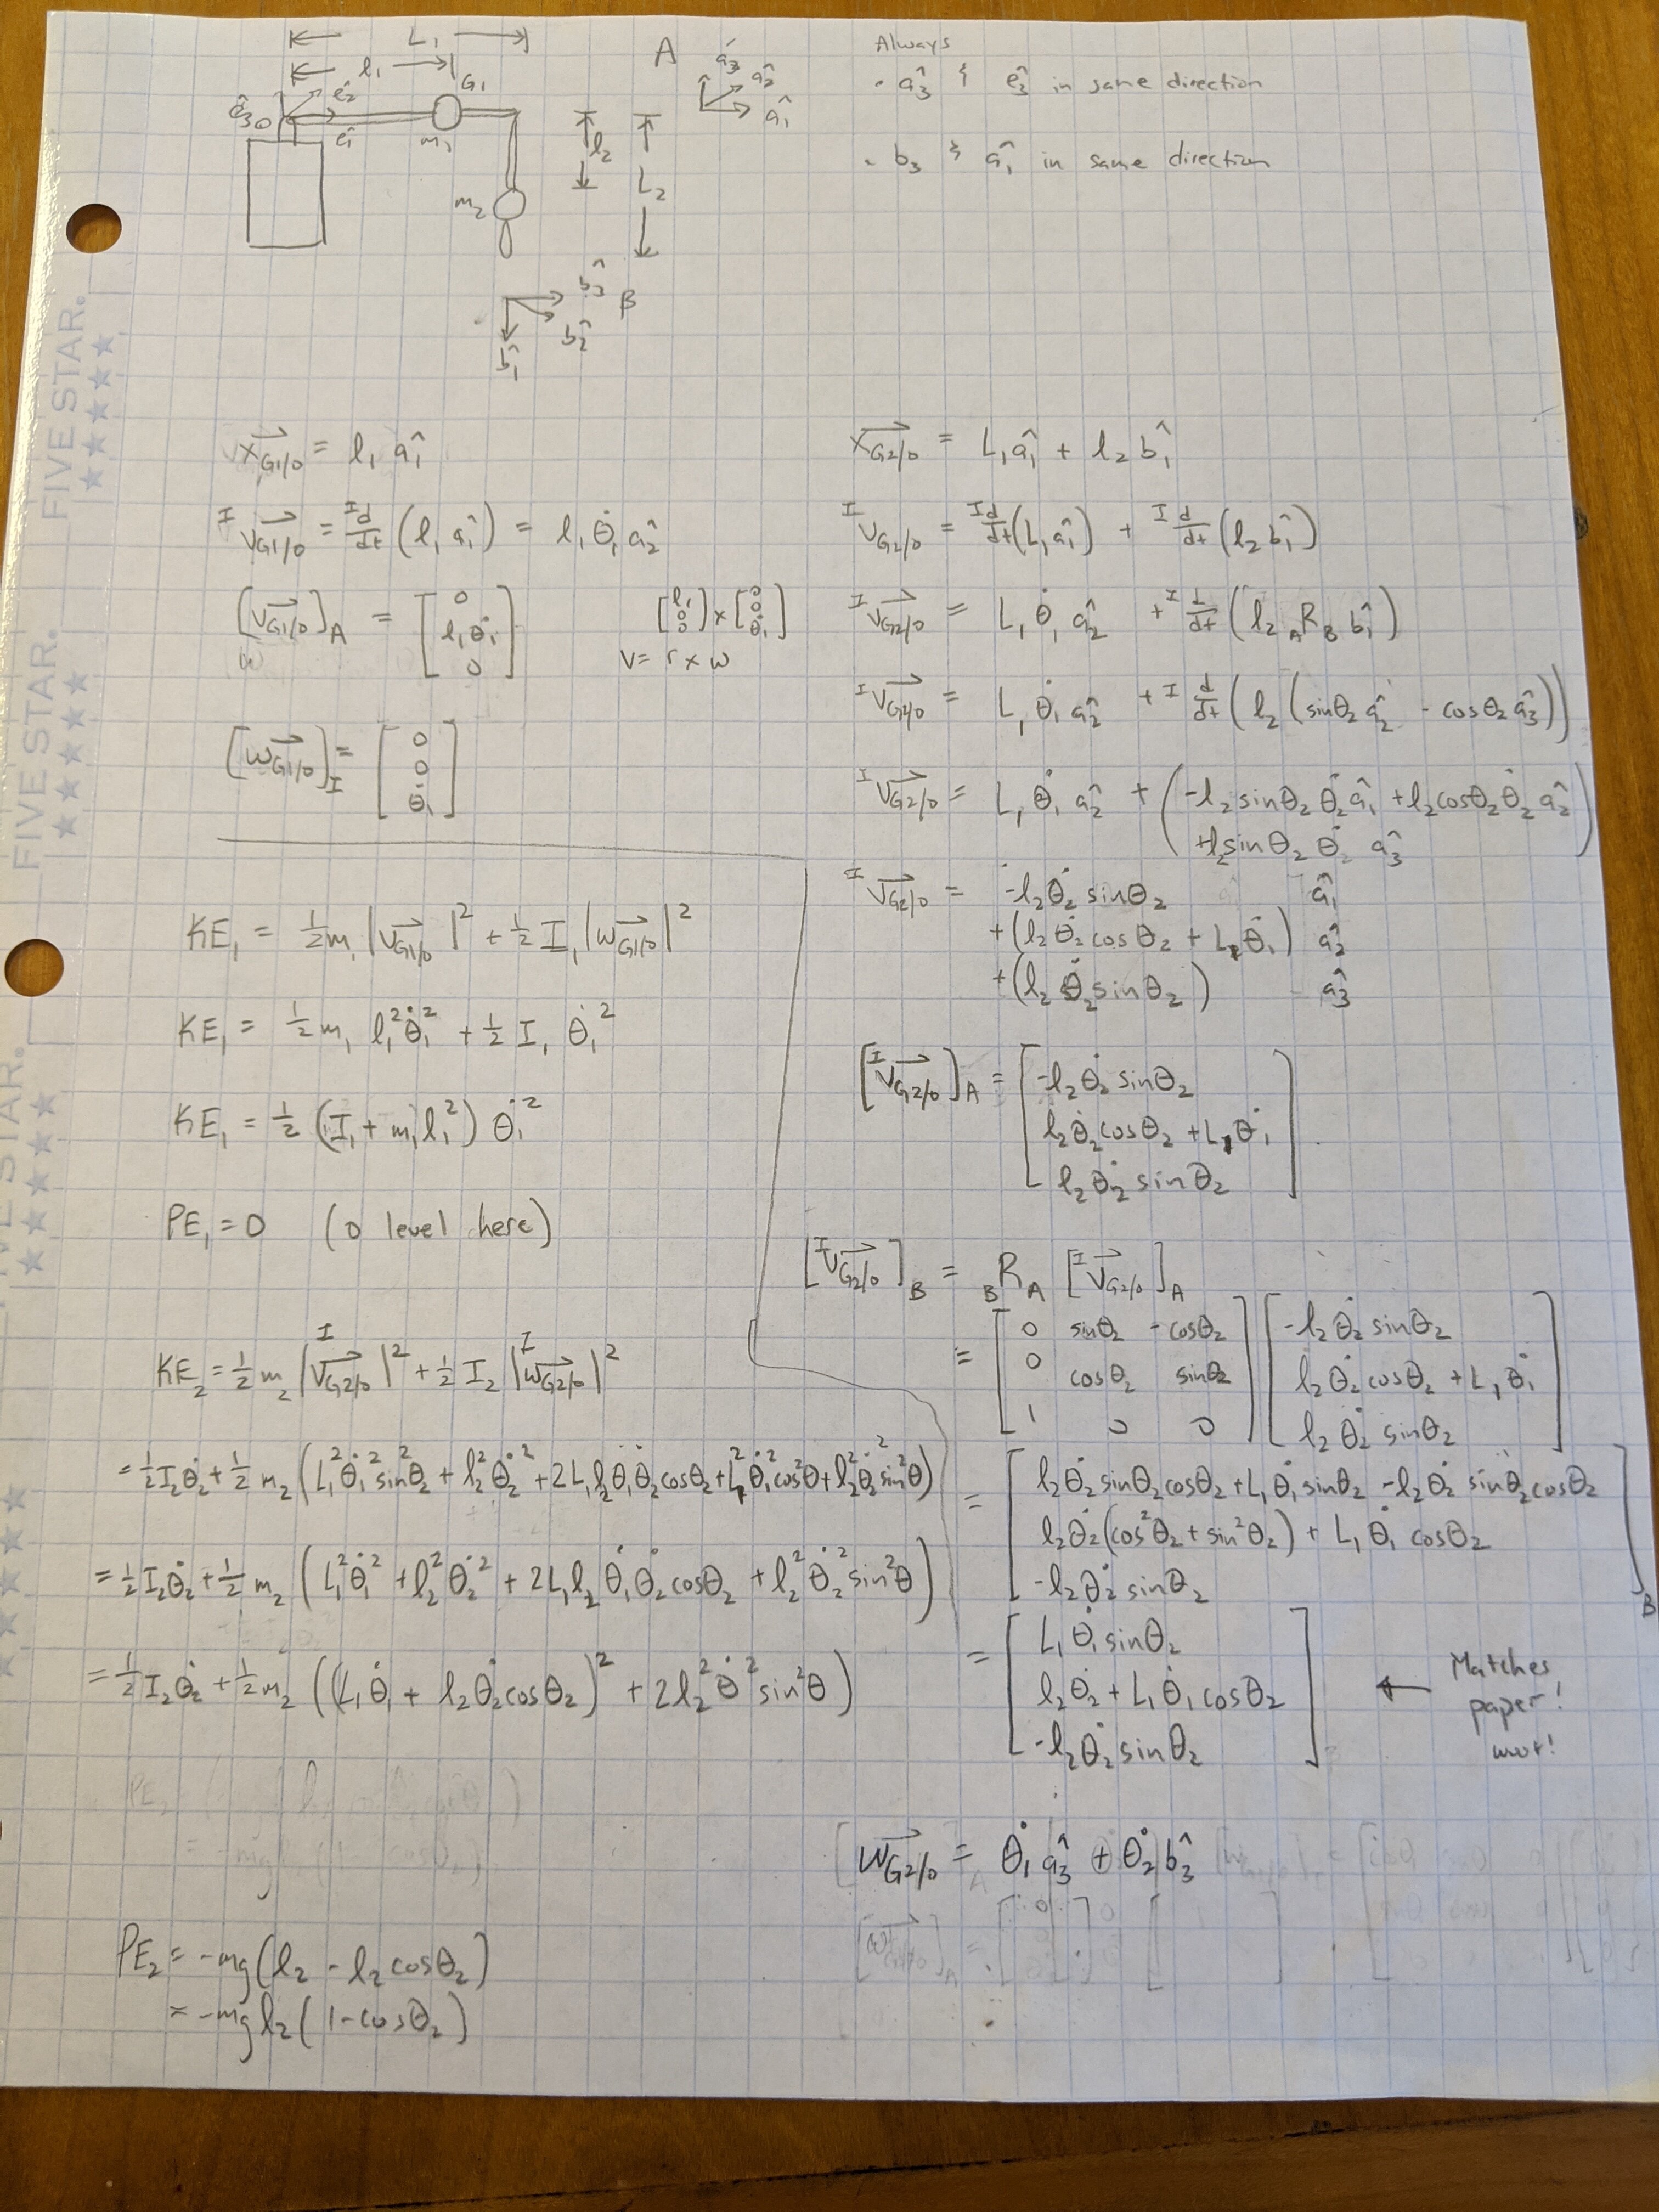 L₁
l₁
G₁
A
â₃
â₂
â₁
ê₃
ê₂
ê₁
O
m₁
l₂
L₂
m₂
b̂₃
B
b̂₂
b̂₁
Always
· â₃ & ê₃ in same direction
· b₃ & â₁ in same direction
FIVE STAR.
FIVE STAR.
x⃗_G1/0 = l₁ â₁
ᴵv⃗_G1/0 = ᴵd/dt (l₁ â₁) = l₁ θ̇₁ â₂
[v⃗_G1/0]_A = [0; l₁θ̇₁; 0]
[l₁; 0; 0] × [0; 0; θ̇₁]
v = r × w
[w⃗_G1/0]_I = [0; 0; θ̇₁]
KE₁ = ½ m₁ |v⃗_G1/0|² + ½ I₁ |w⃗_G1/0|²
KE₁ = ½ m₁ l₁² θ̇₁² + ½ I₁ θ̇₁²
KE₁ = ½ (I₁ + m₁ l₁²) θ̇₁²
PE₁ = 0 (0 level here)
KE₂ = ½ m₂ |ᴵv⃗_G2/0|² + ½ I₂ |ᴵw⃗_G2/0|²
= ½ I₂ θ̇₂ + ½ m₂ (L₁² θ̇₁² sin²θ₂ + l₂² θ̇₂² + 2L₁l₂ θ̇₁ θ̇₂ cosθ₂ + L₁² θ̇₁² cos²θ + l₂² θ̇₂² sin²θ)
= ½ I₂ θ̇₂ + ½ m₂ (L₁² θ̇₁² + l₂² θ̇₂² + 2L₁l₂ θ̇₁ θ̇₂ cosθ₂ + l₂² θ̇₂² sin²θ)
= ½ I₂ θ̇₂ + ½ m₂ ((L₁ θ̇₁ + l₂ θ̇₂ cosθ₂)² + 2l₂² θ̇² sin²θ)
PE₂ = -mg(l₂ - l₂ cosθ₂)
= -mg l₂ (1 - cosθ₂)
x⃗_G2/0 = L₁ â₁ + l₂ b̂₁
ᴵv_G2/0 = ᴵd/dt (L₁ â₁) + ᴵd/dt (l₂ b̂₁)
ᴵv⃗_G2/0 = L₁ θ̇₁ â₂ + ᴵd/dt (l₂ _A R_B b̂₁)
ᴵv⃗_G2/0 = L₁ θ̇₁ â₂ + ᴵd/dt (l₂ (sinθ₂ â₂ - cosθ₂ â₃))
ᴵv⃗_G2/0 = L₁ θ̇₁ â₂ + (-l₂ sinθ₂ θ̇₂ â₁ + l₂ cosθ₂ θ̇₂ â₂
+l₂ sinθ₂ θ̇₂ â₃)
ᴵv⃗_G2/0 = -l₂ θ̇₂ sinθ₂ â₁
+ (l₂ θ̇₂ cosθ₂ + L₁ θ̇₁) â₂
+ (l₂ θ̇₂ sinθ₂) â₃
[ᴵv⃗_G2/0]_A = [-l₂ θ̇₂ sinθ₂; l₂ θ̇₂ cosθ₂ + L₁ θ̇₁; l₂ θ̇₂ sinθ₂]
[ᴵv⃗_G2/0]_B = _B R_A [ᴵv⃗_G2/0]_A
= [0 sinθ₂ -cosθ₂; 0 cosθ₂ sinθ₂; 1 0 0] [-l₂ θ̇₂ sinθ₂; l₂ θ̇₂ cosθ₂ + L₁ θ̇₁; l₂ θ̇₂ sinθ₂]
= [l₂ θ̇₂ sinθ₂ cosθ₂ + L₁ θ̇₁ sinθ₂ - l₂ θ̇₂ sinθ₂ cosθ₂; l₂ θ̇₂ (cos²θ₂ + sin²θ₂) + L₁ θ̇₁ cosθ₂; -l₂ θ̇₂ sinθ₂]_B
= [L₁ θ̇₁ sinθ₂; l₂ θ̇₂ + L₁ θ̇₁ cosθ₂; -l₂ θ̇₂ sinθ₂]
← Matches
paper!
woot!
w⃗_G2/0 = θ̇₁ â₃ + θ̇₂ b̂₃